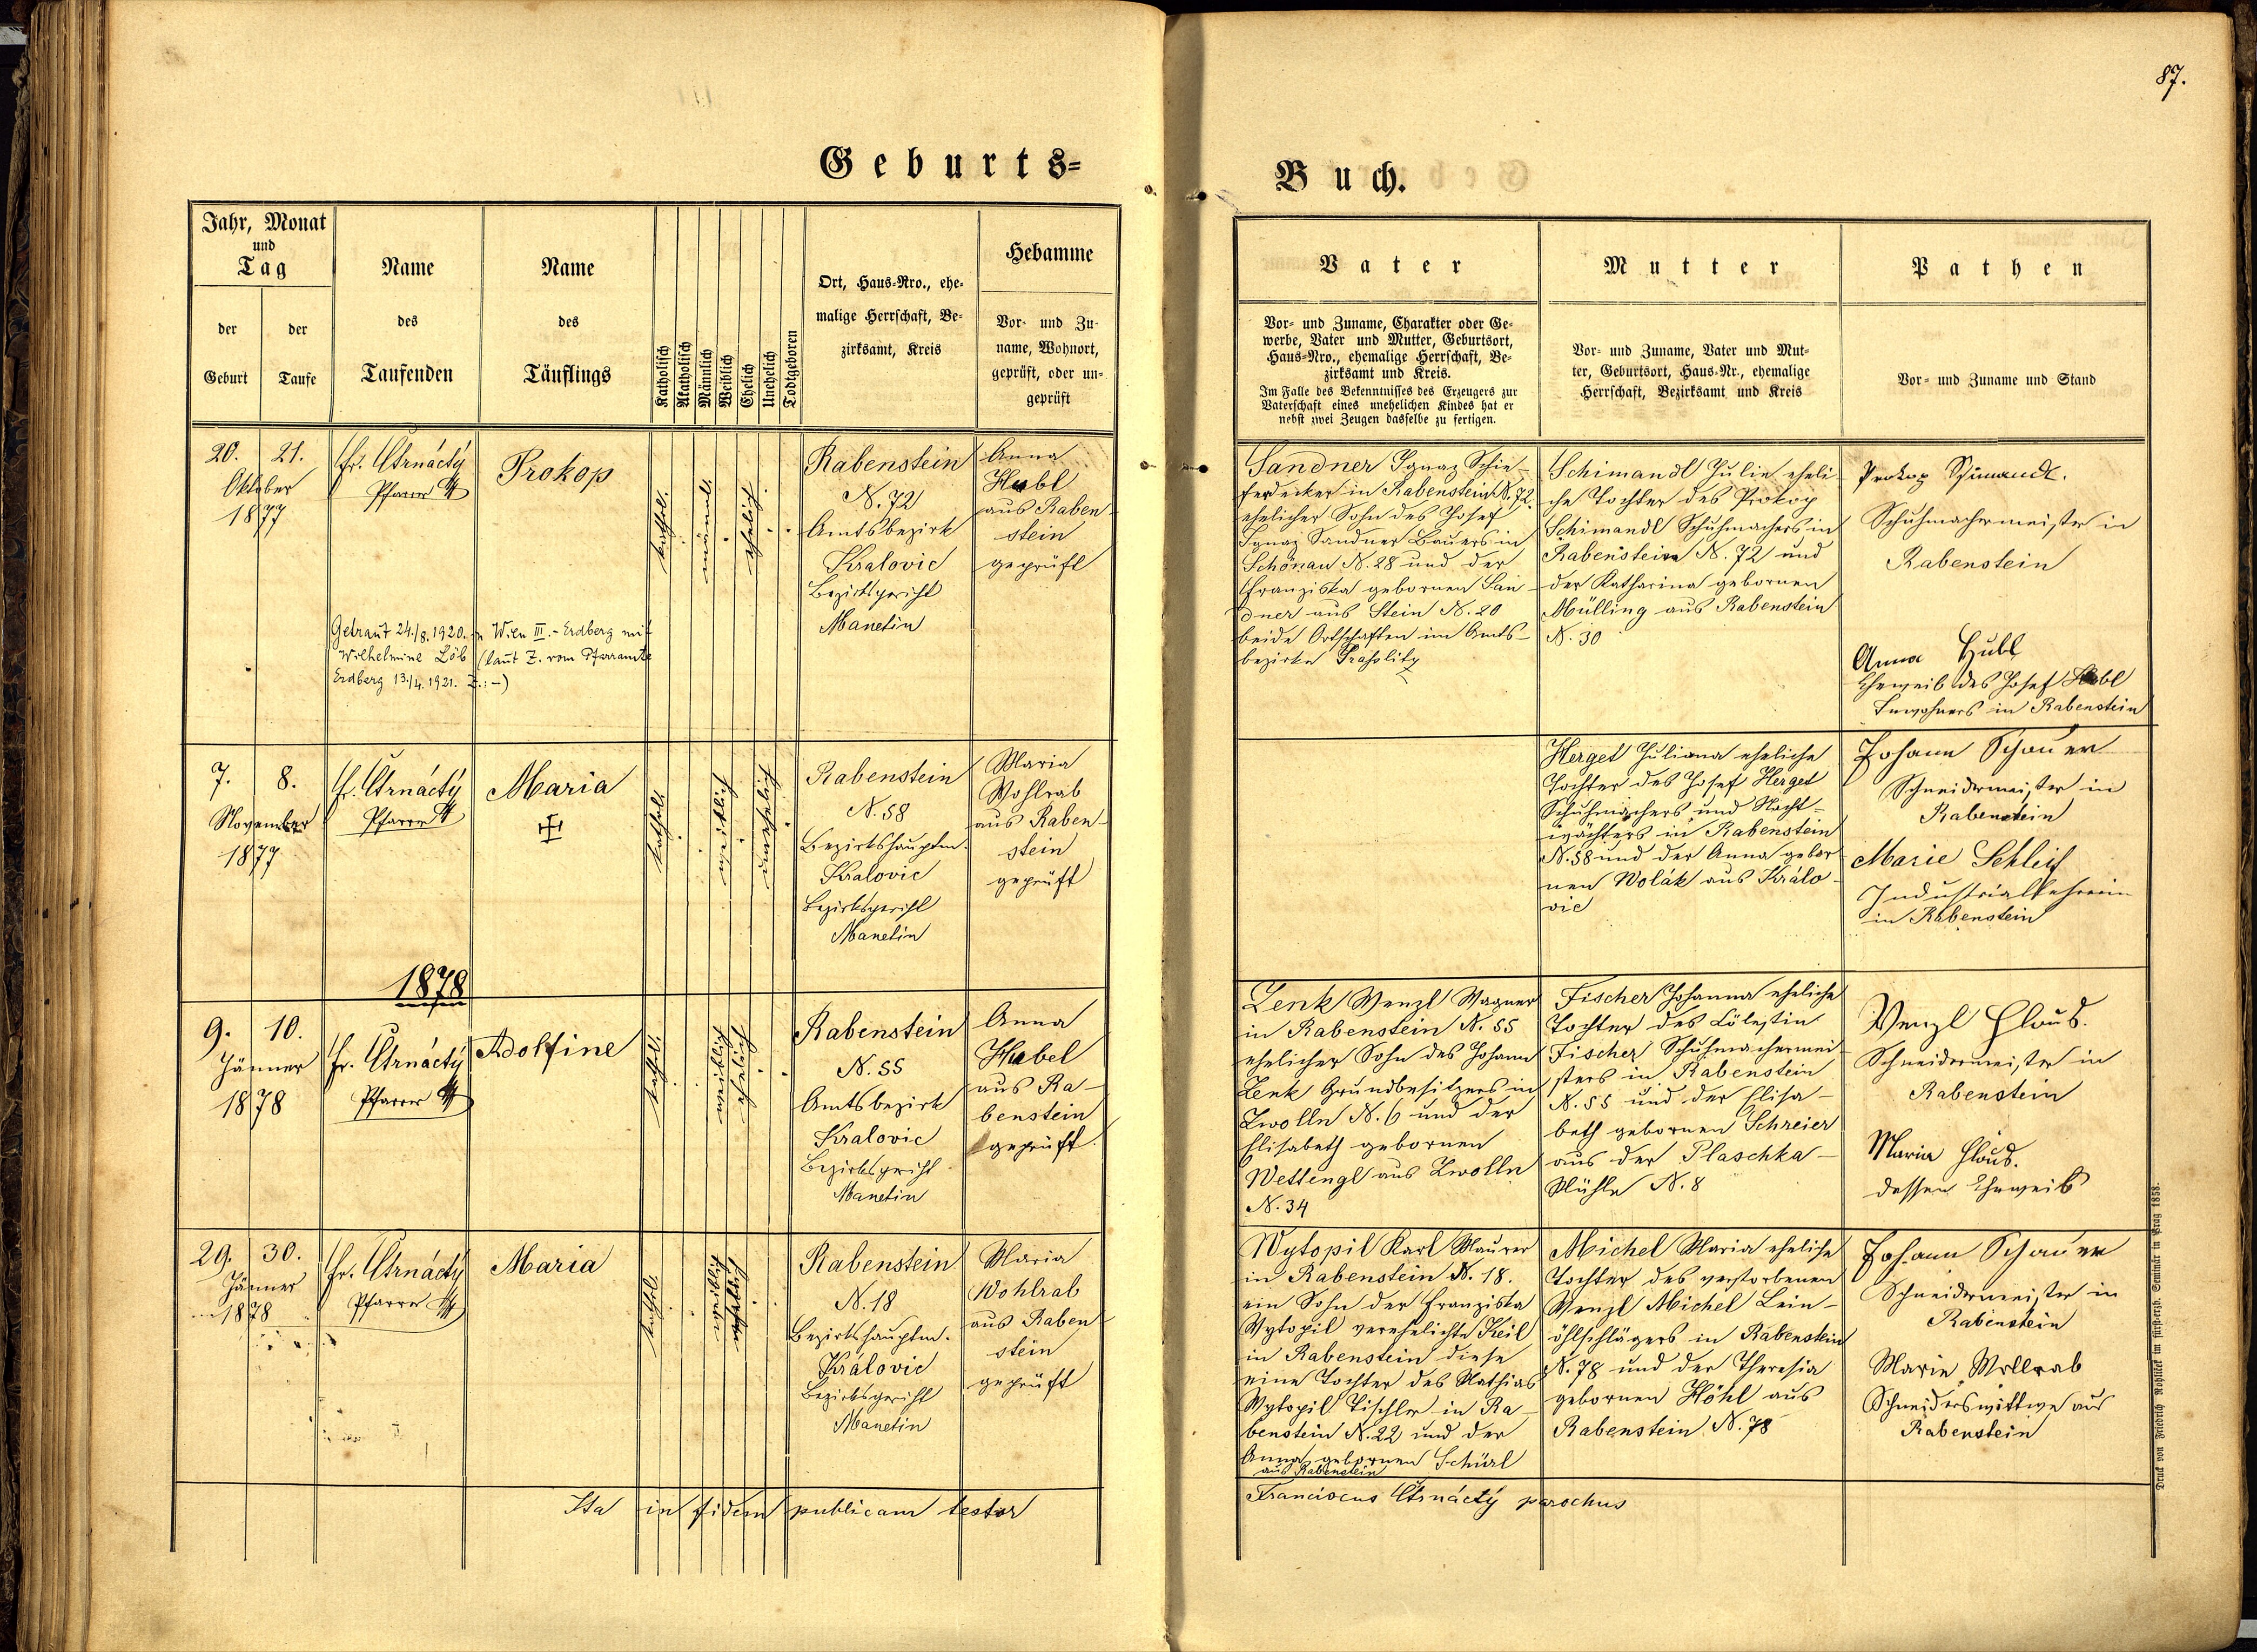 87.
Geburts-
Buch.
Jahr, Monat
und
Tag
der
Geburt
der
Taufe
Name
des
Taufenden
Name
des
Täuflings
Katholisch
Akatholisch
Männlich
Weiblich
Ehelich
Unehelich
Todtgeboren
Ort, Haus-Nro., ehe-
malige Herrschaft, Be-
zirksamt, Kreis
Hebamme
Vor- und Zu-
name, Wohnort,
geprüft, oder un-
geprüft
Vater
Vor- und Zuname, Charakter oder Ge-
werbe, Vater und Mutter, Geburtsort,
Haus-Nro., ehemalige Herrschaft, Be-
zirksamt und Kreis.
Im Falle des Bekenntnisses des Erzeugers zur
Vaterschaft eines unehelichen Kindes hat er
nebst zwei Zeugen dasselbe zu fertigen.
Mutter
Vor- und Zuname, Vater und Mut-
ter, Geburtsort, Haus-Nr., ehemalige
Herrschaft, Bezirksamt und Kreis
Pathen
Vor- und Zuname und Stand
20. 21.
Oktober
1877
Fr. Čtrnáctý
Pfarrer
Prokop
kathol.
männl.
ehelich
Rabenstein
N. 72
Amtsbezirk
Kralovic
Bezirksgericht
Manetin
Anna
Hubl
aus Raben-
stein
geprüft
Getraut 24./8. 1920. in Wien III.-Erdberg mit
Wilhelmine Löb (laut Z. vom Pfarramte
Erdberg 13./4. 1921. Z.:-)
Sandner Ignaz Schie-
ferdecker in Rabenstein N. 72.
ehelicher Sohn des Josef
Ignaz Sandner Bauers in
Schönau N. 28 und der
Franziska gebornen San-
dner aus Stein N. 20
beide Ortschaften im Amts-
bezirke
Schimandl Julie eheli-
che Tochter des Prokop
Schimandl Schuhmachers in
Rabenstein N. 72 und
der Katharina gebornen
Mülling aus Rabenstein
N. 30
Prokop Schimandl.
Schuhmachermeister in
Rabenstein
Anna Hubl
Eheweib des Josef Hubl
Inwohners in Rabenstein
7. 8.
November
1877
Fr. Čtrnáctý
Pfarrer
Maria
kathol.
weiblich
unehelich
Rabenstein
N. 58
Bezirkshauptm.
Kralovic
Bezirksgericht
Manetin
Maria
Wohlrab
aus Raben-
stein
geprüft
Herget Juliana eheliche
Tochter des Josef Herget
Schuhmachers und Nacht-
wächters in Rabenstein
N. 58 und der Anna gebor-
nen Wolák aus Králo-
vic
Johann Schauer
Schneidermeister in
Rabenstein
Marie Schleif
Industriallehrerin
in Rabenstein
1878
9. 10.
Jänner
1878
Fr. Čtrnáctý
Pfarrer
Adolfine
kathol.
weiblich
ehelich
Rabenstein
N. 55
Amtsbezirk
Kralovic
Bezirksgericht
Manetin
Anna
Hubel
aus Ra-
benstein
geprüft.
Lenk Wenzl Wagner
in Rabenstein N. 55
ehelicher Sohn des Johann
Lenk Grundbesitzers in
Zwolln N. 6 und der
Elisabeth gebornen
Wettengl aus Zwolln
N. 34
Fischer Johanna eheliche
Tochter des Cölestin
Fischer Schuhmachermei-
sters in Rabenstein
N. 55 und der Elisa-
beth gebornen Schreier
aus der Plaschka-
Mühle N. 8
Wenzl Haus.
Schneidermeister in
Rabenstein
Maria Haus.
dessen Eheweib
29. 30.
Jänner
1878
Fr. Čtrnáctý
Pfarrer
Maria
kathol.
weiblich
Rabenstein
N. 18
Bezirkshauptm.
Královic
Bezirksgericht
Manetin
Maria
Wohlrab
aus Raben-
stein
geprüft
Wytopil Karl Maurer
in Rabenstein N. 18.
ein Sohn der Franziska
Wytopil verehelichte Keil
in Rabenstein diese
eine Tochter des Mathias
Wytopil Tischler in Ra-
benstein N. 22 und der
Anna gebornen Schürl
aus Rabenstein
Michel Maria eheliche
Tochter des verstorbenen
Wenzl Michel Lein-
öhlschlägers in Rabenstein
N. 78 und der Theresia
gebornen Höhl aus
Rabenstein N. 78
Johann Schauer
Schneidermeister in
Rabenstein
Marie Wollrab
Schneiderswittwe aus
Rabenstein
Ita in fidem publicam testor
Franciscus Čtrnáctý parochus
Druck von Friedrich Rohliček im fürsterzb. Seminär in Prag 1858.